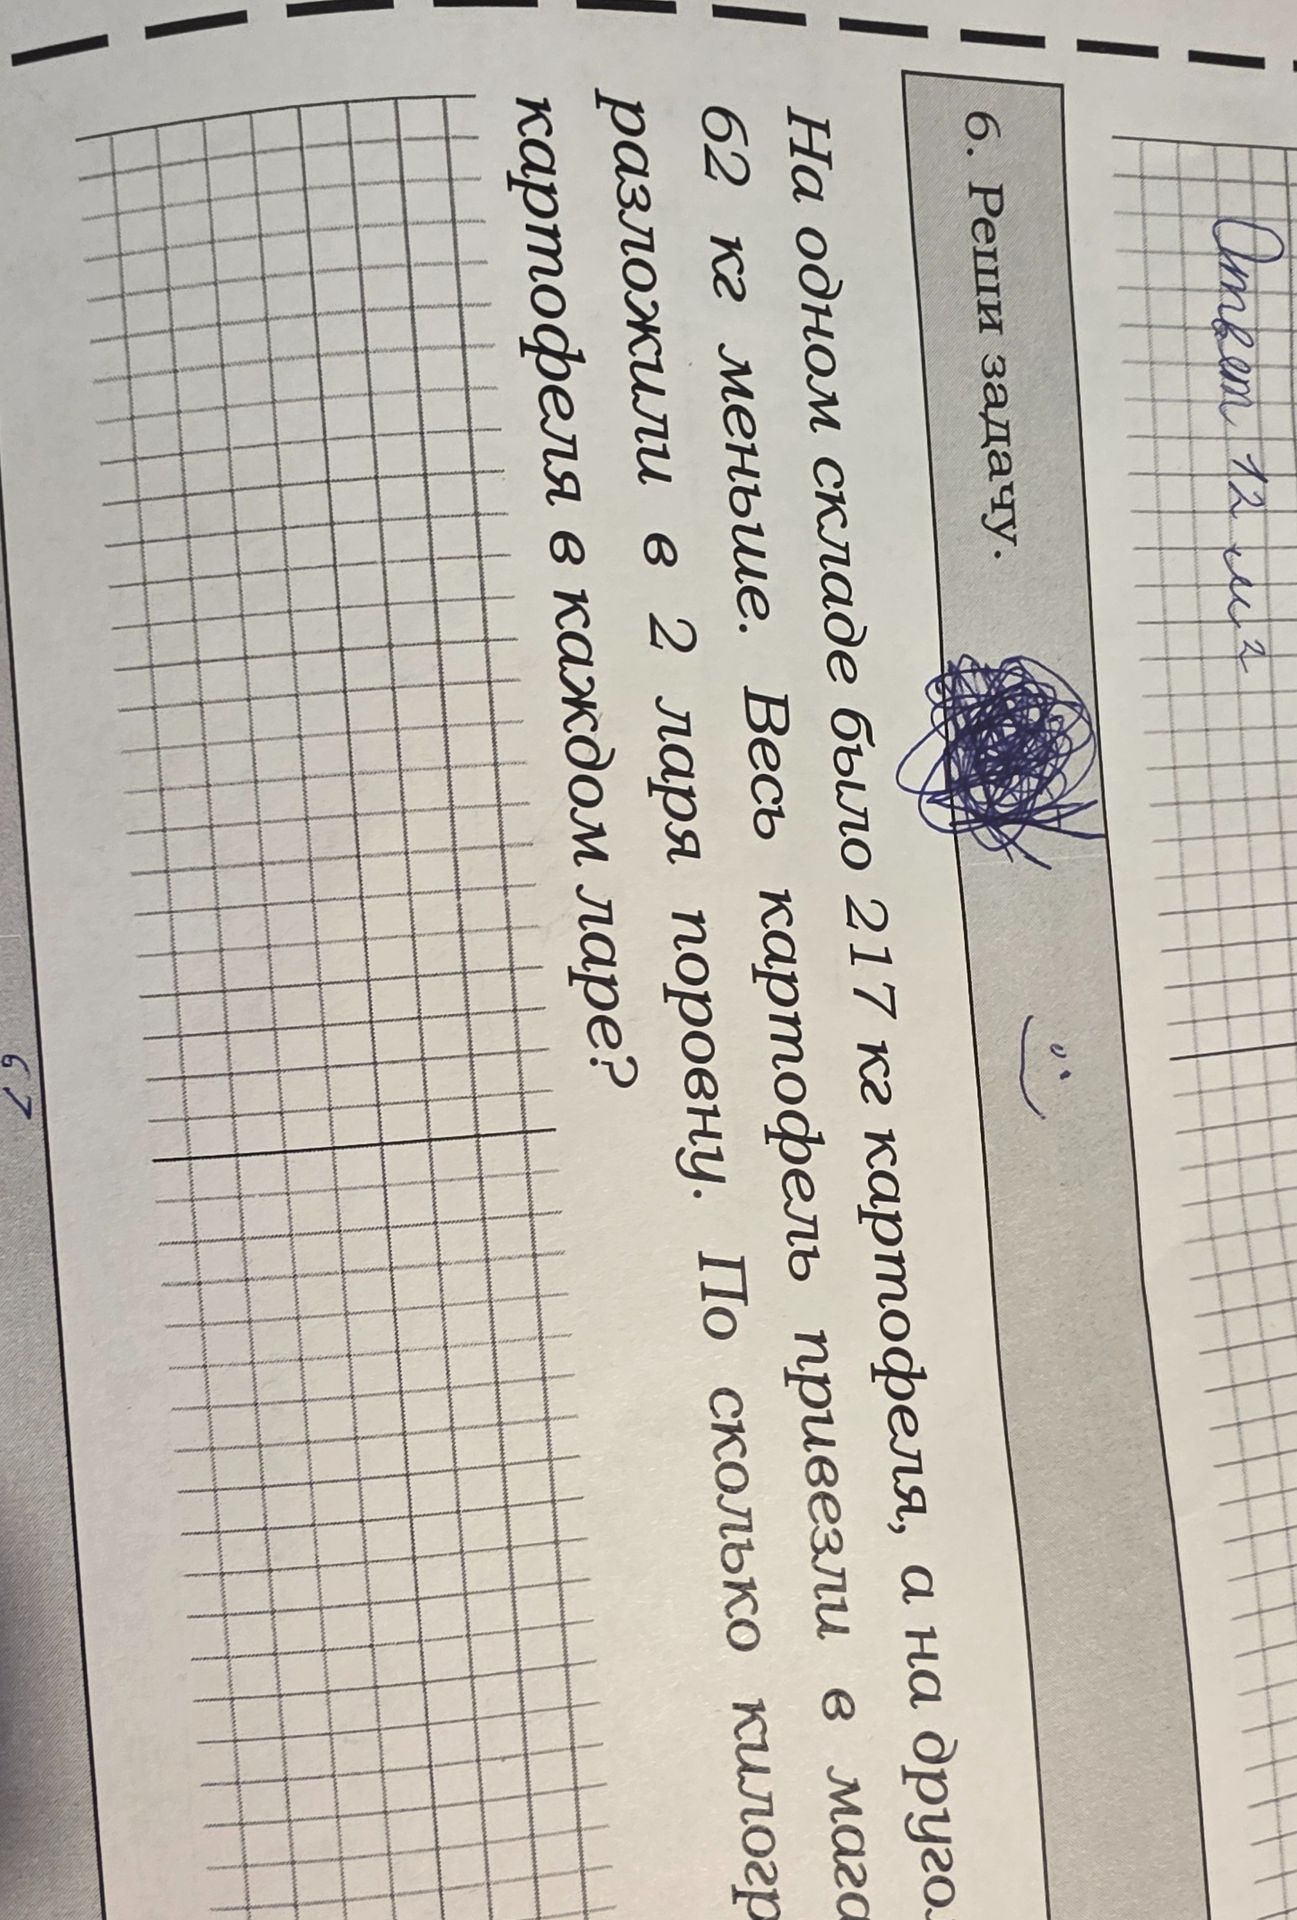 Ответ 12 м²
6. Реши задачу.
На одном складе было 217 кг картофеля, а на
62 кг меньше. Весь картофель привезли в
разложили в 2 ларя поровну. По сколько
картофеля в каждом ларе?